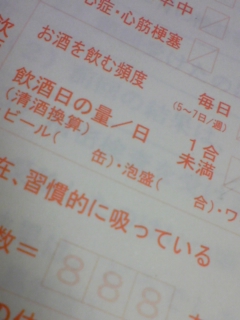 卒中
心症・心筋梗塞
お酒を飲む頻度 毎日
(5〜7日/週)
飲酒日の量／日 1合
(清酒換算) 未満
ビール( 缶)・泡盛( 合)・ワ
在、習慣的に吸っている
数＝ 888